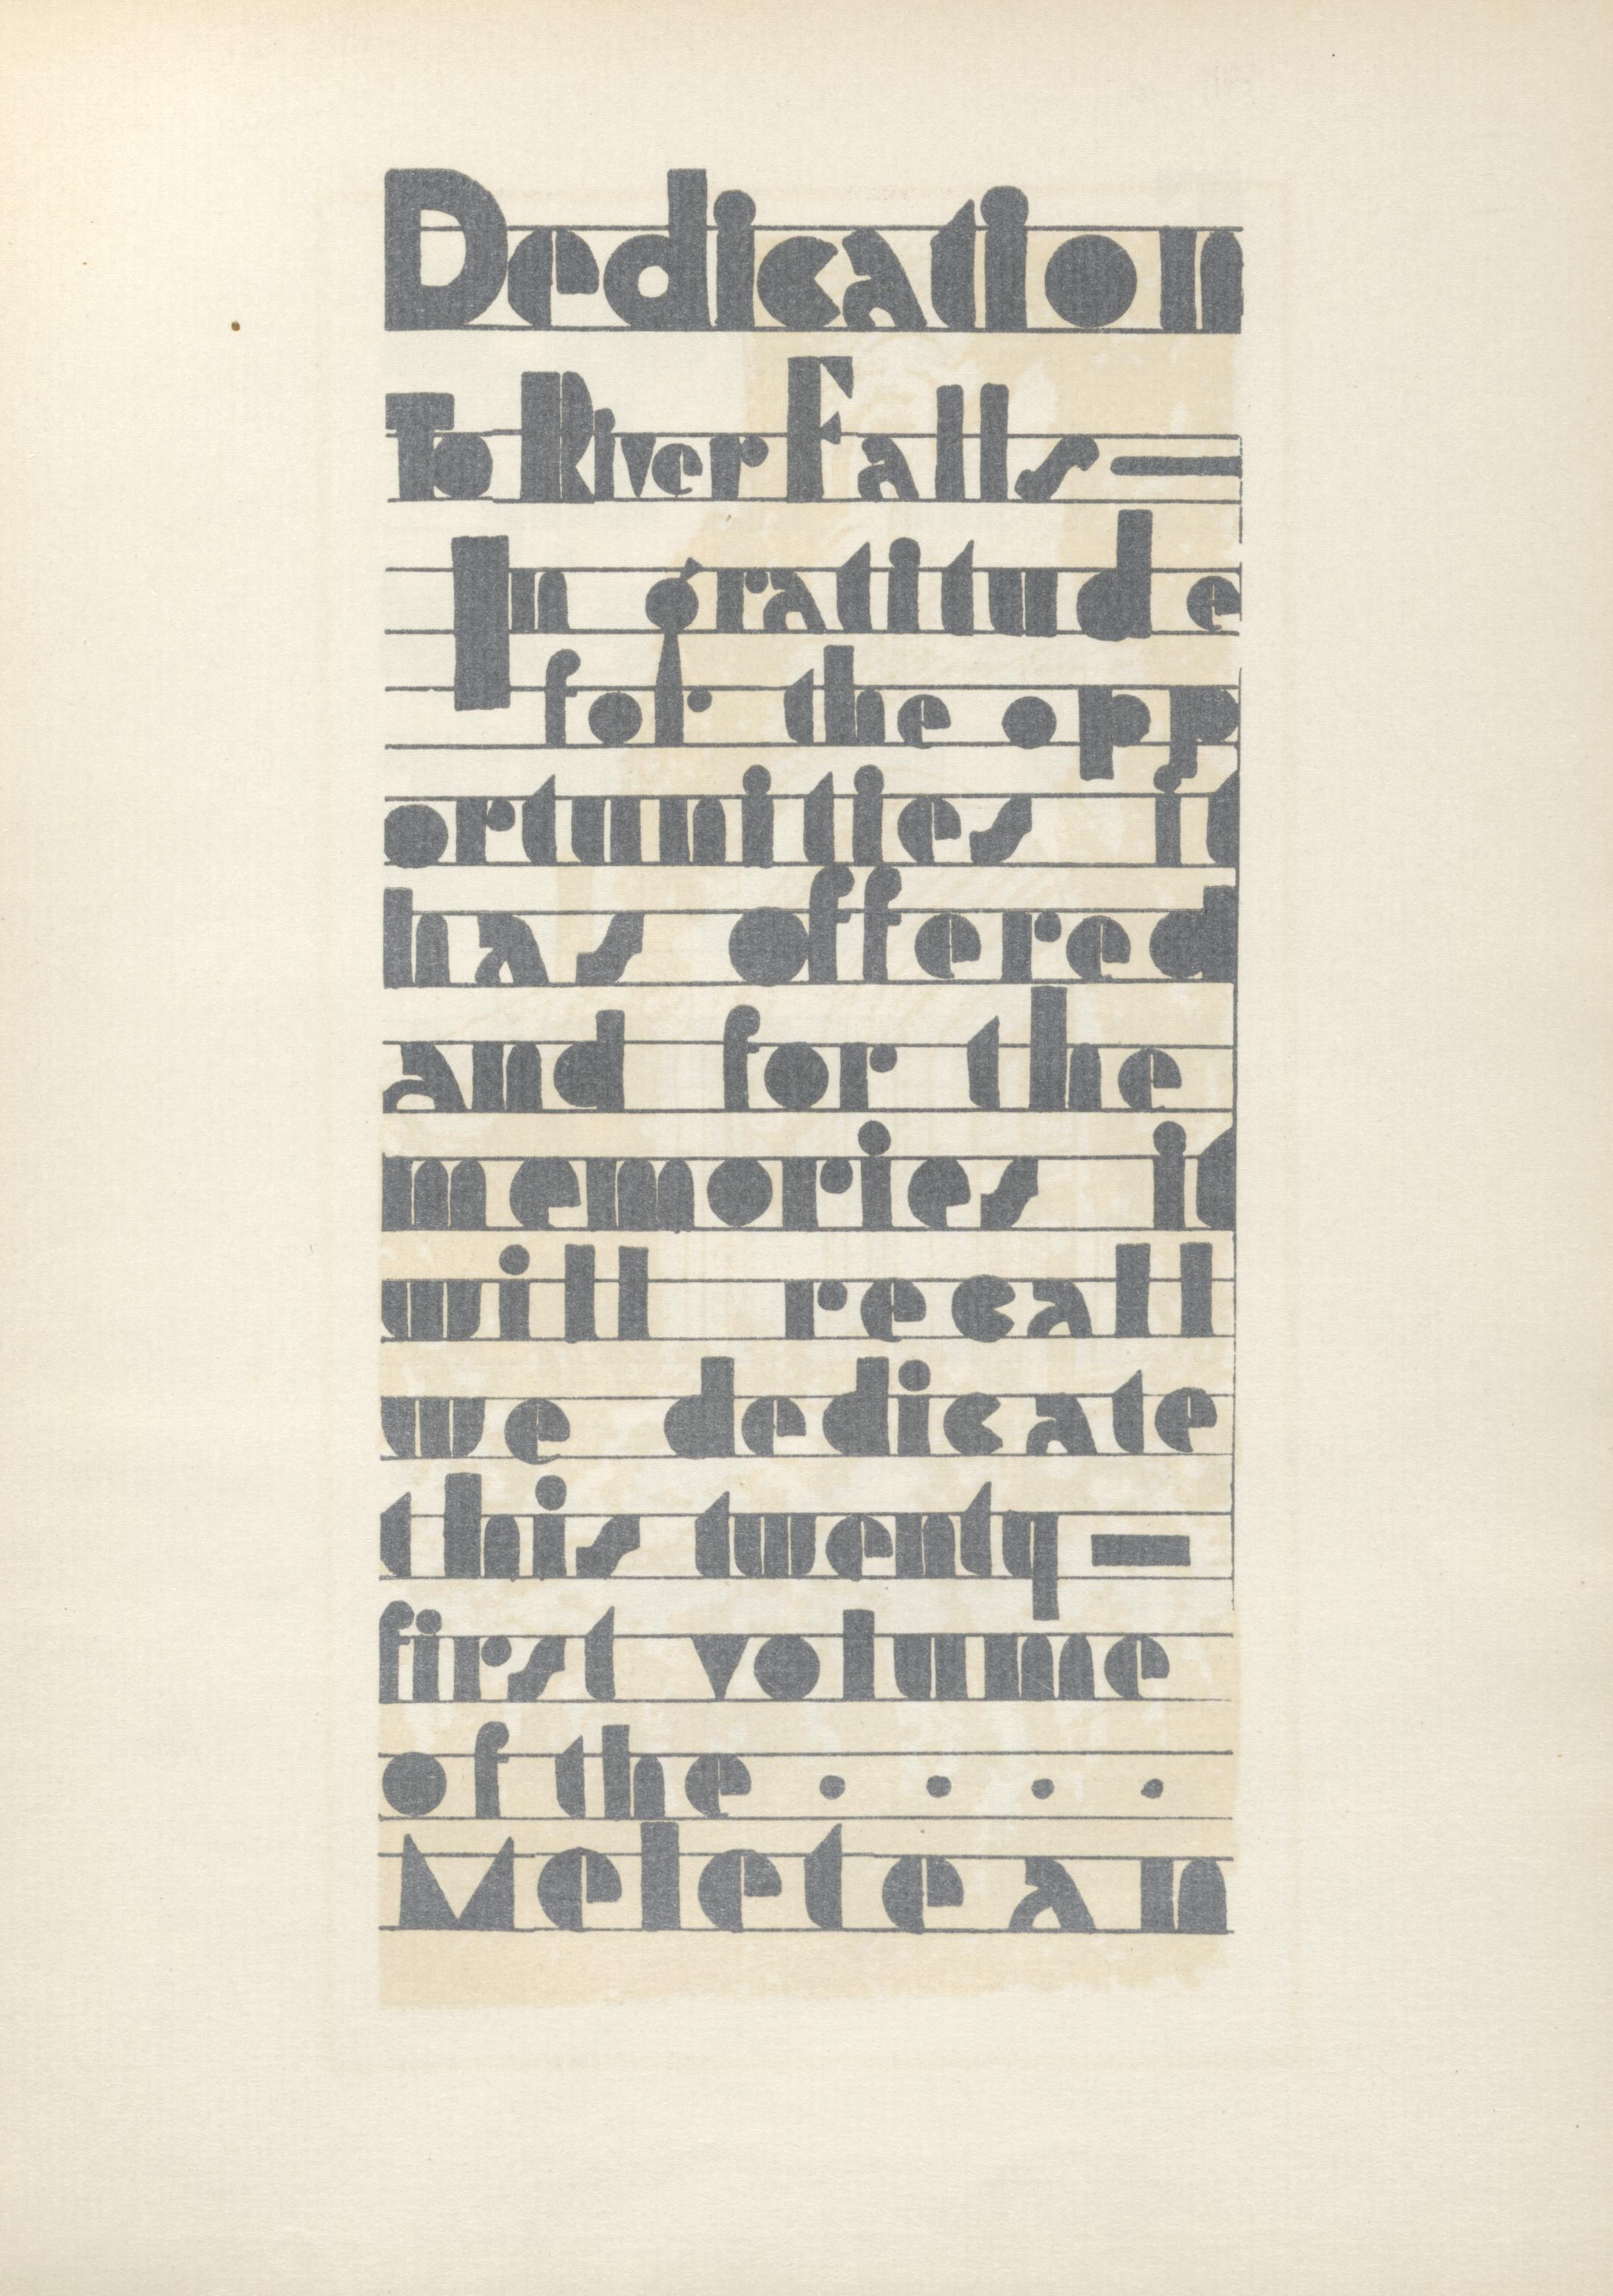 Dedication
To River Falls—
In gratitude
for the opp
ortunities it
has offered
and for the
memories it
will recall
we dedicate
this twenty-
first volume
of the . . . .
Meletean